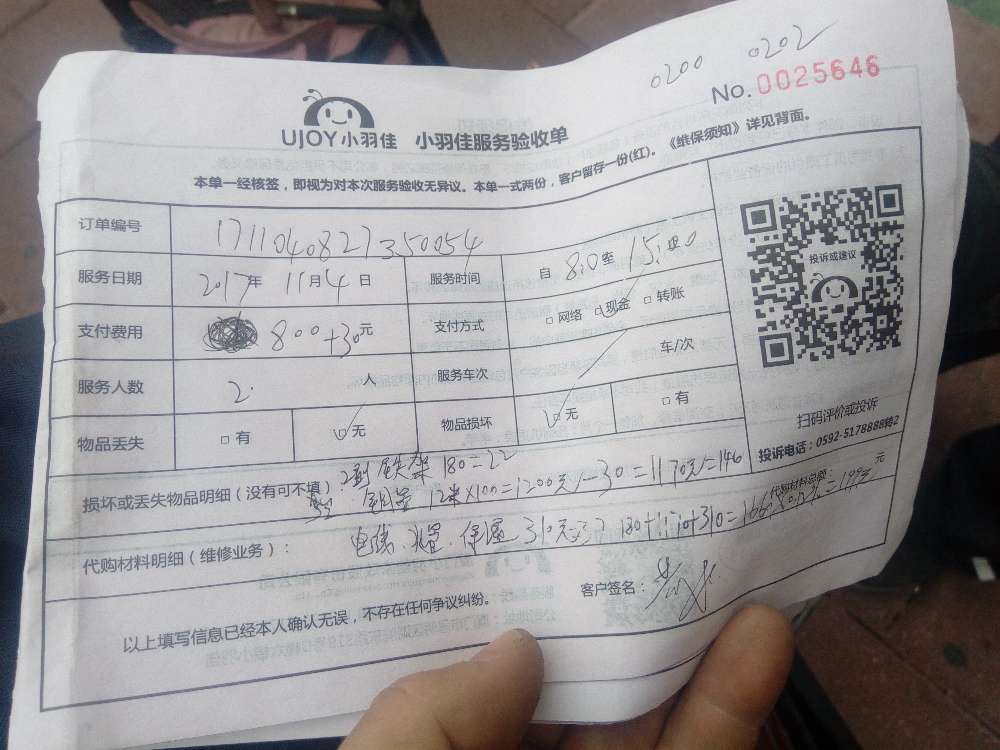 0200 0202
No. 0025646
UJOY小羽佳 小羽佳服务验收单
本单一经核签，即视为对本次服务验收无异议。本单一式两份，客户留存一份(红)。《维保须知》详见背面。
订单编号 1711040827350054
服务日期 2017年 11月4日 服务时间 自 8:0至 15:00
支付费用 800+30元 支付方式 □网络 □现金 □转账
服务人数 2. 人 服务车次 车/次
物品丢失 □有 □无 物品损坏 □无 □有
投诉或建议
扫码评价或投诉
投诉电话：0592-5178888转2
损坏或丢失物品明细（没有可不填）： 2副铁架 180=22
铜管 12米×100=1200元-30=1170元=140
代购材料总额： 元
代购材料明细（维修业务）： 310元=37 180+1170+310=1660
客户签名：
以上填写信息已经本人确认无误，不存在任何争议纠纷。